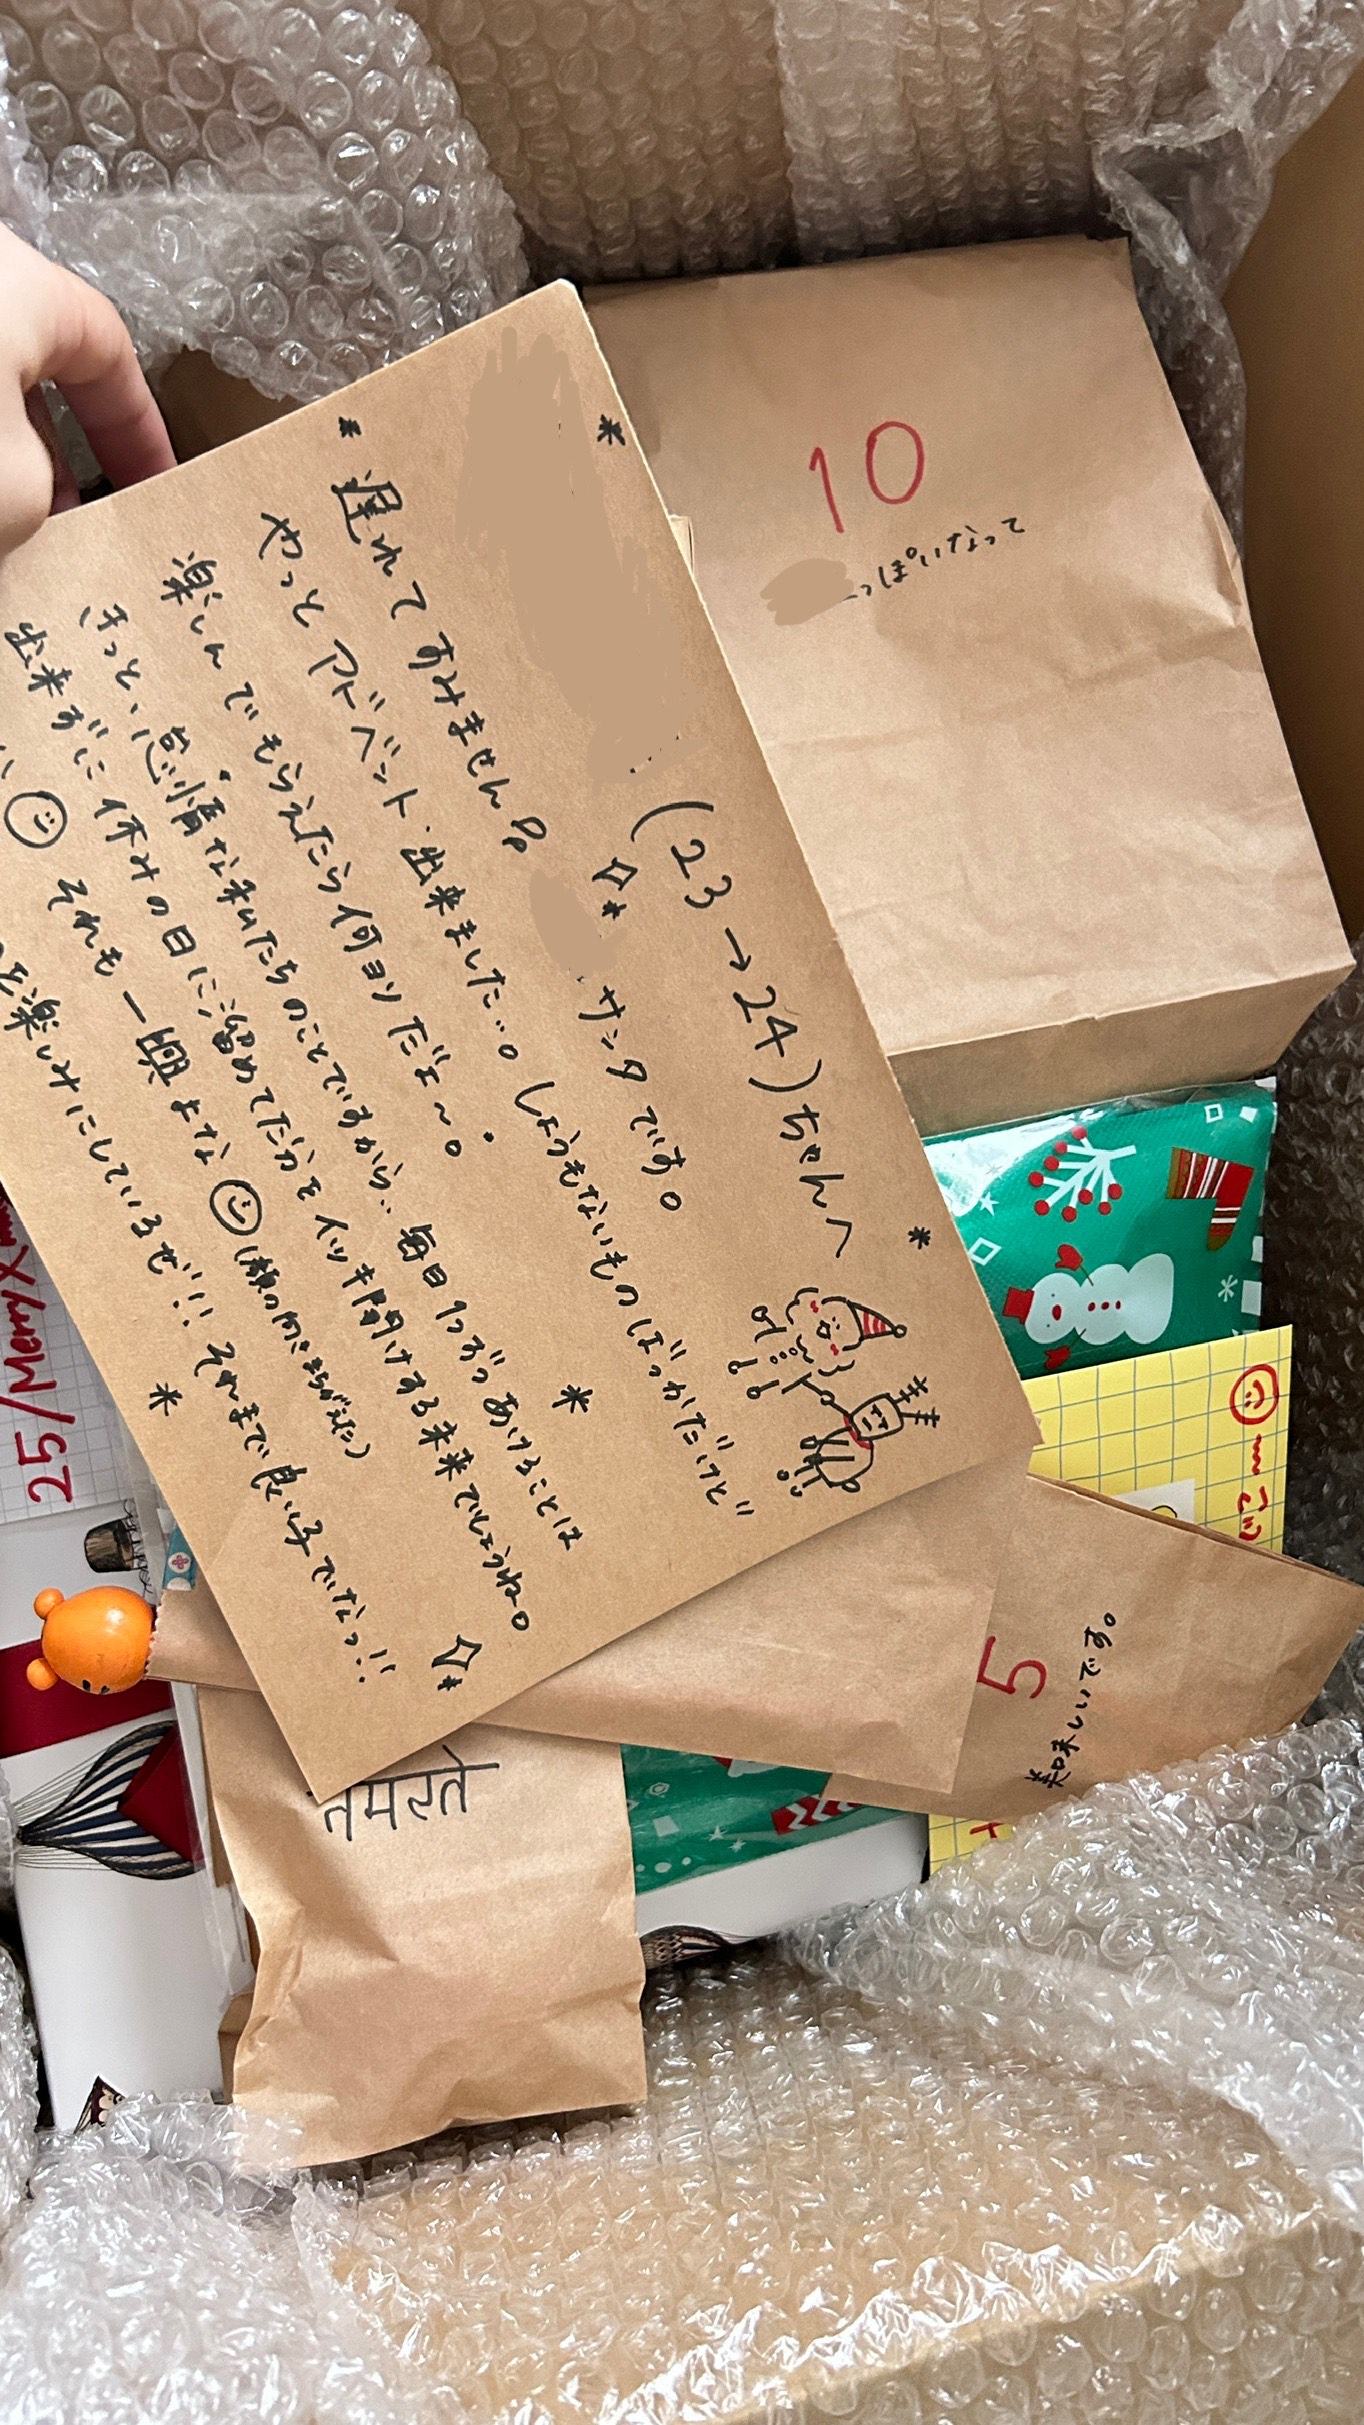 (23→24)ちゃんへ
サンタです。
遅れてすみません
やっとアドベント出来ました…。しょうもないものばっかだけど
楽しんでもらえたら何ヨリだよ〜。
きっと、怠惰な私たちのことですから… 毎日1つずつあけることは
出来ずに休みの日に溜めてた分をイッキ開けする未来でしょうね。
それも一興よな (顔の向きまちがえた)
を楽しみにしているぜ!! それまで良い子でなっ!!
10
っぽいなって
25/MerryXm
5
美味しいです。
नमस्ते